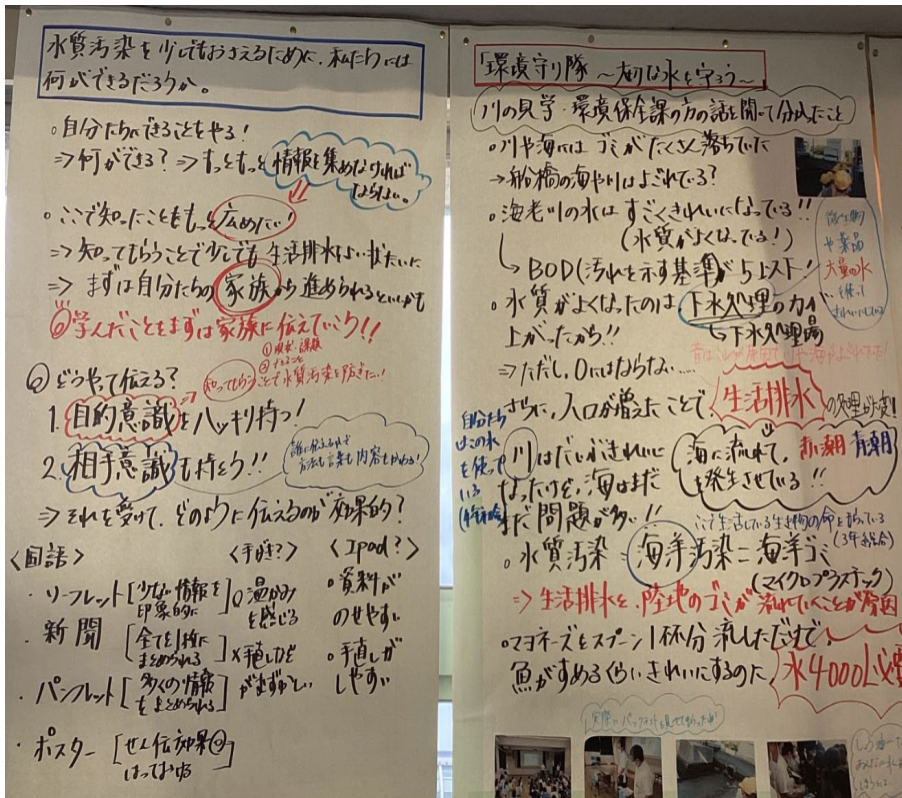 水質汚染を少しでもおさえるために、私たちには
何ができるだろうか。
。自分たちにできることをやる!
⇒何ができる?⇒もっともっと情報を集めなければ
ならない。
。ここで知ったことをもっと広めたい!
⇒知ってもらうことで少しでも生活排水
⇒まずは自分たちの家族から進められるといいかも
◎学んだことをまずは家族に伝えていこう!!
①現状・課題
知ってもらうことで水質汚染を防ぎたい!
◎どうやって伝える?
1.目的意識をハッキリ持つ!
2.相手意識も持とう!!
誰に伝えるかで
方法も言葉も内容もかわる!
⇒それを受けて、どのように伝えるのが効果的?
<国語>
・リーフレット[少ない情報を
印象的に
・新聞[全てを1枚に
まとめられる]
・パンフレット[多くの情報
をまとめられる]
・ポスター[せん伝効果◎
はっておける]
<手がき?>
○温かみ
を感じる
×手直しなど
がまずしい
<Ipad?>
。資料が
のせやすい
。手直しが
しやすい
「環境守り隊 ~大切な水を守ろう~」
川の見学・環境保全課の方の話を聞いて分かったこと
。川や海にはゴミがたくさん落ちていた
→船橋の海や川はよごれている?
。海老川の水はすごくきれいになっている!!
(水質がよくなっている!)
↳BOD(汚れを示す基準)が
微生物
や薬品
大量の水
を使って
きれいにしている
。水質がよくなったのは下水処理の力が
上がったから!!
↳下水処理場
⇒ただし、0にはならない……
さらに、人口が増えたことで生活排水の処理が大変!
自分たち
はこの水
を使って
いる
川はだいぶきれいに
なったけど、海はまだ
まだ問題が多い!!
海に流れて、赤潮 青潮
を発生させている!!
ここで生活している生き物の命を
(3年総合)
。水質汚染=海洋汚染=海洋ゴミ
(マイクロプラスチック)
⇒生活排水と、陸地のゴミが流れていくことが原因
。マヨネーズをスプーン1杯分流しただけで、
魚がすめるくらいきれいにするのに、水4000L必要
実際にパックテストを見せてもらったよ